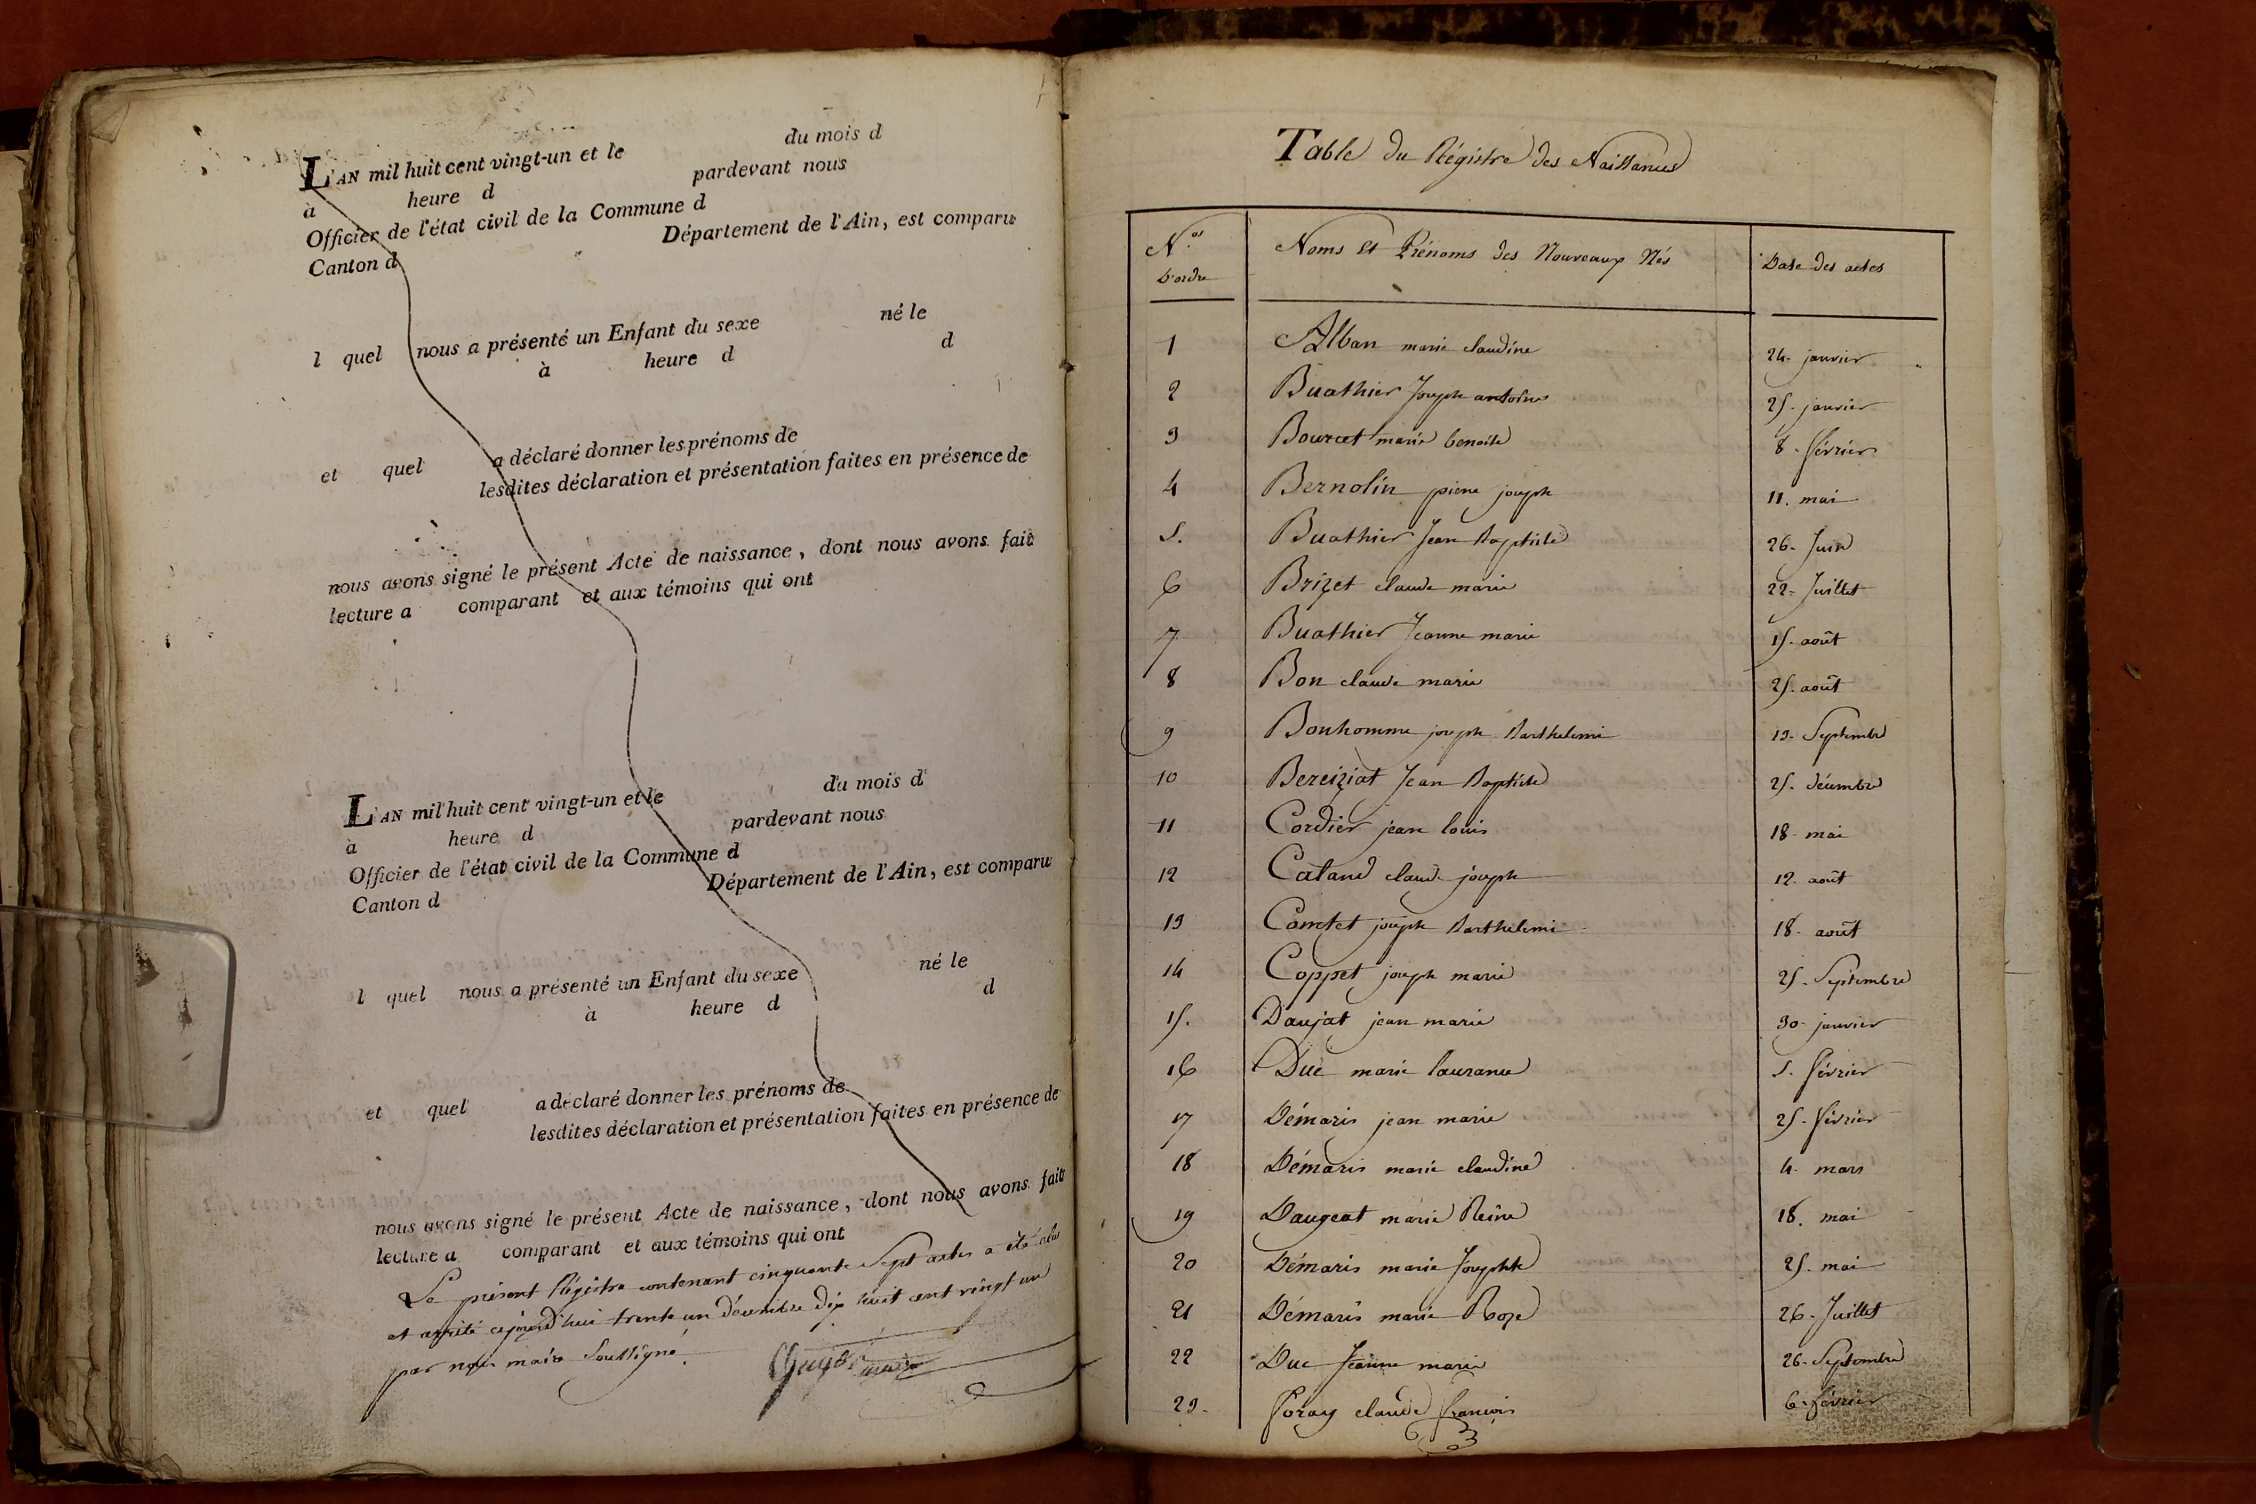 du mois d
L'AN mil huit cent vingt-un et le
pardevant nous
à heure d
Officier de l'état civil de la Commune d
Département de l'Ain, est comparu
Canton d
né le
l quel nous a présenté un Enfant du sexe
d
à heure d
a déclaré donner les prénoms de
et quel
lesdites déclaration et présentation faites en présence de
nous avons signé le présent Acte de naissance, dont nous avons fait
lecture a comparant et aux témoins qui ont
du mois d
L'AN mil huit cent vingt-un et le
pardevant nous
à heure d
Officier de l'état civil de la Commune d
Département de l'Ain, est comparu
Canton d
né le
l quel nous a présenté un Enfant du sexe
d
à heure d
a déclaré donner les prénoms de
et quel
lesdites déclaration et présentation faites en présence de
nous avons signé le présent Acte de naissance, dont nous avons fait
lecture a comparant et aux témoins qui ont
Le présent Régistre contenant cinquante Sept actes a été clos
et arrêté cejourd'hui trente un décembre dix huit cent vingt un
par nous maire Soussigné.
Table du Régistre des Naissances
N.os D'ordre Noms et Prénoms des Nouveaux Nés Date des actes
1 Alban marie claudine 24. janvier
2 Buathier Joseph antoine 25. janvier
3 Bourcet marie benoite 8. février
4 Bernolin pierre joseph 11. mai
5. Buathier Jean Baptiste 26. Juin
6 Brizet claude marie 22. Juillet
7 Buathier Jeanne marie 15. août
8 Bon claude marie 25. août
9 Bonhomme joseph Barthelemi 13. Septembre
10 Bereiziat Jean Baptiste 25. décembre
11 Cordier jean louis 18. mai
12 Catand claude joseph 12. août
13 Comtet joseph Barthelemi 18. août
14 Coppet joseph marie 25. Septembre
15. Daujat jean marie 30. janvier
16 Duc marie laurance 5. février
17 Démaris jean marie 25. février
18 Démaris marie claudine 4. mars
19 Daugeat marie Reine 18. mai
20 Démaris marie Josephte 25. mai
21 Démaris marie Roze 26. Juillet
22 Duc Jeanne marie 26. Septembre
23. Foray claude françois 6. février